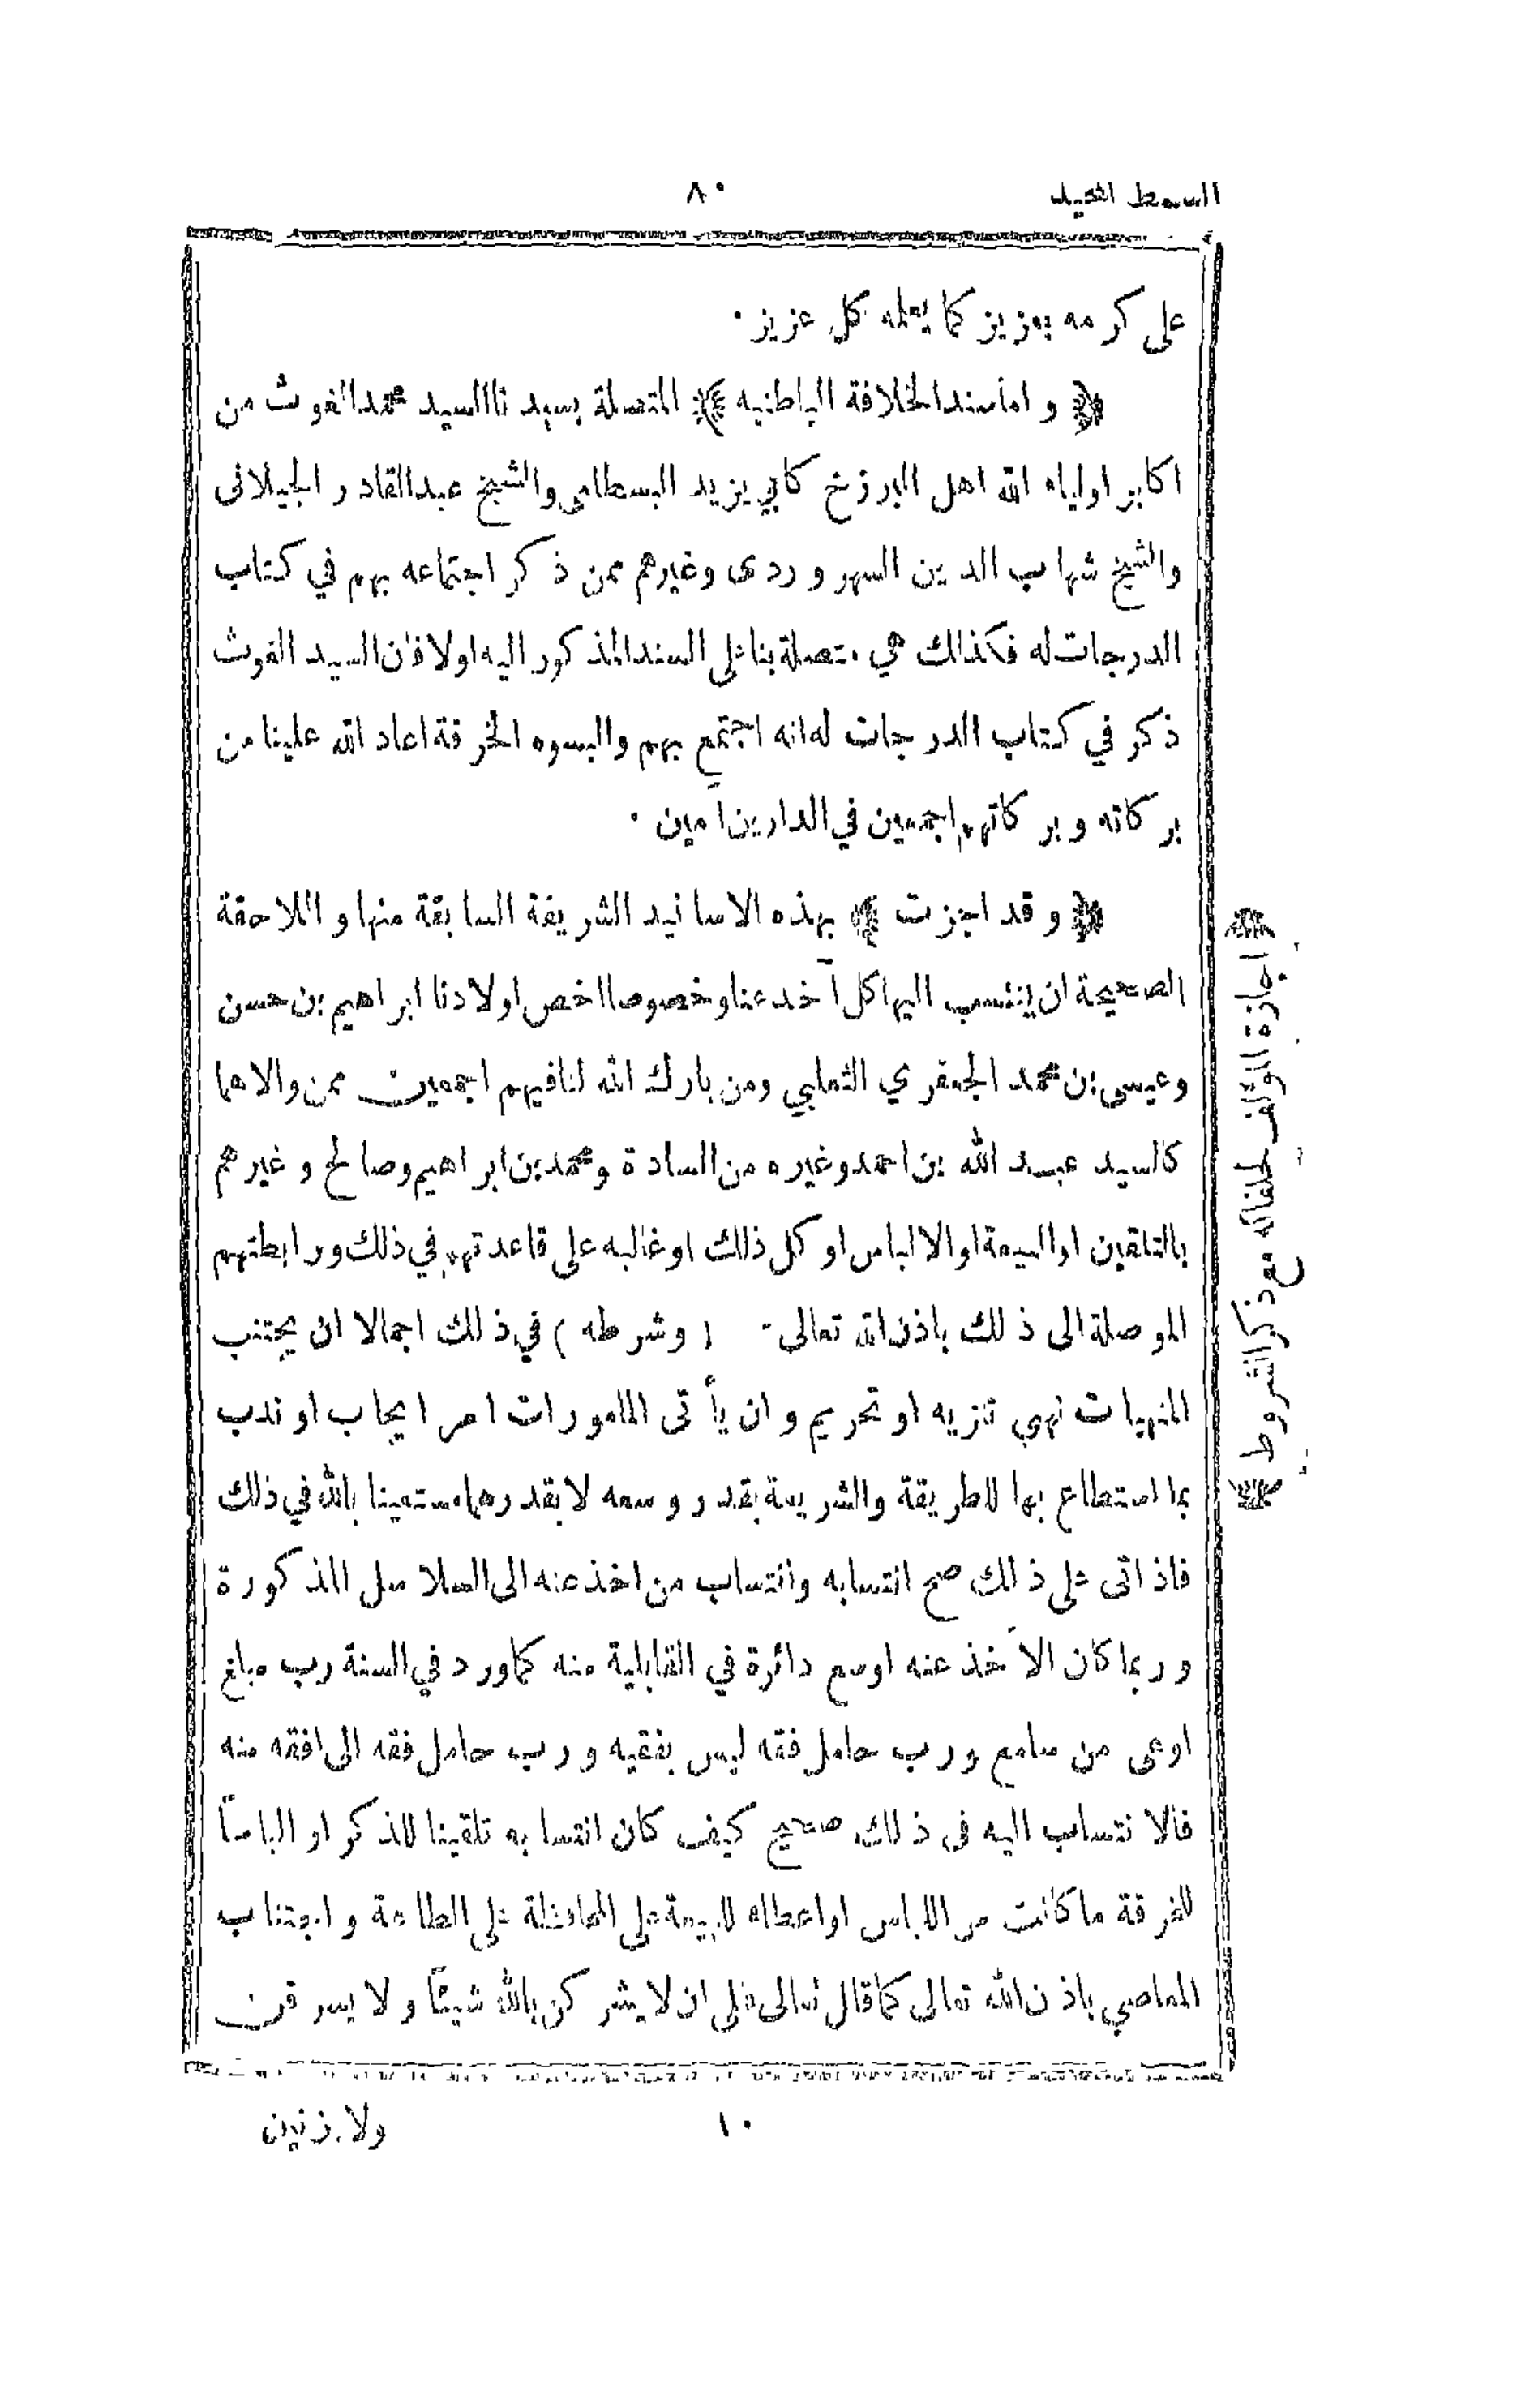 السمط المجيد
٨٠
على كرمه بعزيز كما يعلمه كل عزيز ٠
﴿ و اما سند الخلافة الباطنيه ﴾ المتصلة بسيد نا السيد محمد الغوث من
اكابر اولياء الله اهل البرزخ كابي يزيد البسطامى والشيخ عبد القادر الجيلانى
والشيخ شهاب الدين السهروردى وغيرهم ممن ذكر اجتماعه بهم في كتاب
الدرجات له فكذلك هي متصلة بنا على السند المذكور اليه اولا فان السيد الغوث
ذكر في كتاب الدرجات له انه اجتمع بهم والبسوه الخرقة اعاد الله علينا من
بركاته وبركاتهم اجمعين في الدارين آمين ٠
﴿ وقد اجزت ﴾ بهذه الاسانيد الشريفة السابقة منها و اللاحقة
الصحيحة ان ينتسب اليها كل آخذ عنا وخصوصا اخص اولادنا ابراهيم بن حسن
وعيسى بن محمد الجعفري الثعلبي ومن بارك الله لنا فيهم اجمعين ممن والاهما
كالسيد عبد الله بن احمد وغيره من السادة ومحمد بن ابراهيم وصالح وغيرهم
بالتلقين او البيعة او الالباس او كل ذلك او غالبه على قاعدتهم في ذلك ورابطتهم
الموصلة الى ذلك باذن الله تعالى ٠ ( وشرطه ) في ذلك اجمالا ان يجتنب
المنهيات نهي تنزيه او تحريم و ان يأتى المامورات امر ايجاب او ندب
بما استطاع بها للطريقة والشريعة بقدر وسعه لا بقدرهما مستعينا بالله في ذلك
فاذ اتى على ذلك صح انتسابه وانتساب من اخذ عنه الى السلاسل المذكورة
وربما كان الآخذ عنه اوسع دائرة في القابلية منه كما ورد في السنة رب مبلغ
اوعى من سامع ورب حامل فقه ليس بفقيه ورب حامل فقه الى افقه منه
فالانتساب اليه فى ذلك صحيح كيف كان انتسابه تلقينا للذكر او الباساً
للخرقة ما كانت من اللباس او اعطاء للبيعة على المحافظة على الطاعة واجتناب
المعاصي باذن الله تعالى كما قال تعالى على ان لا يشركن بالله شيئاً ولا يسرقن
﴿ اجازة المؤلف لخلفائه مع ذكر الشروط ﴾
١٠
ولا يزنين